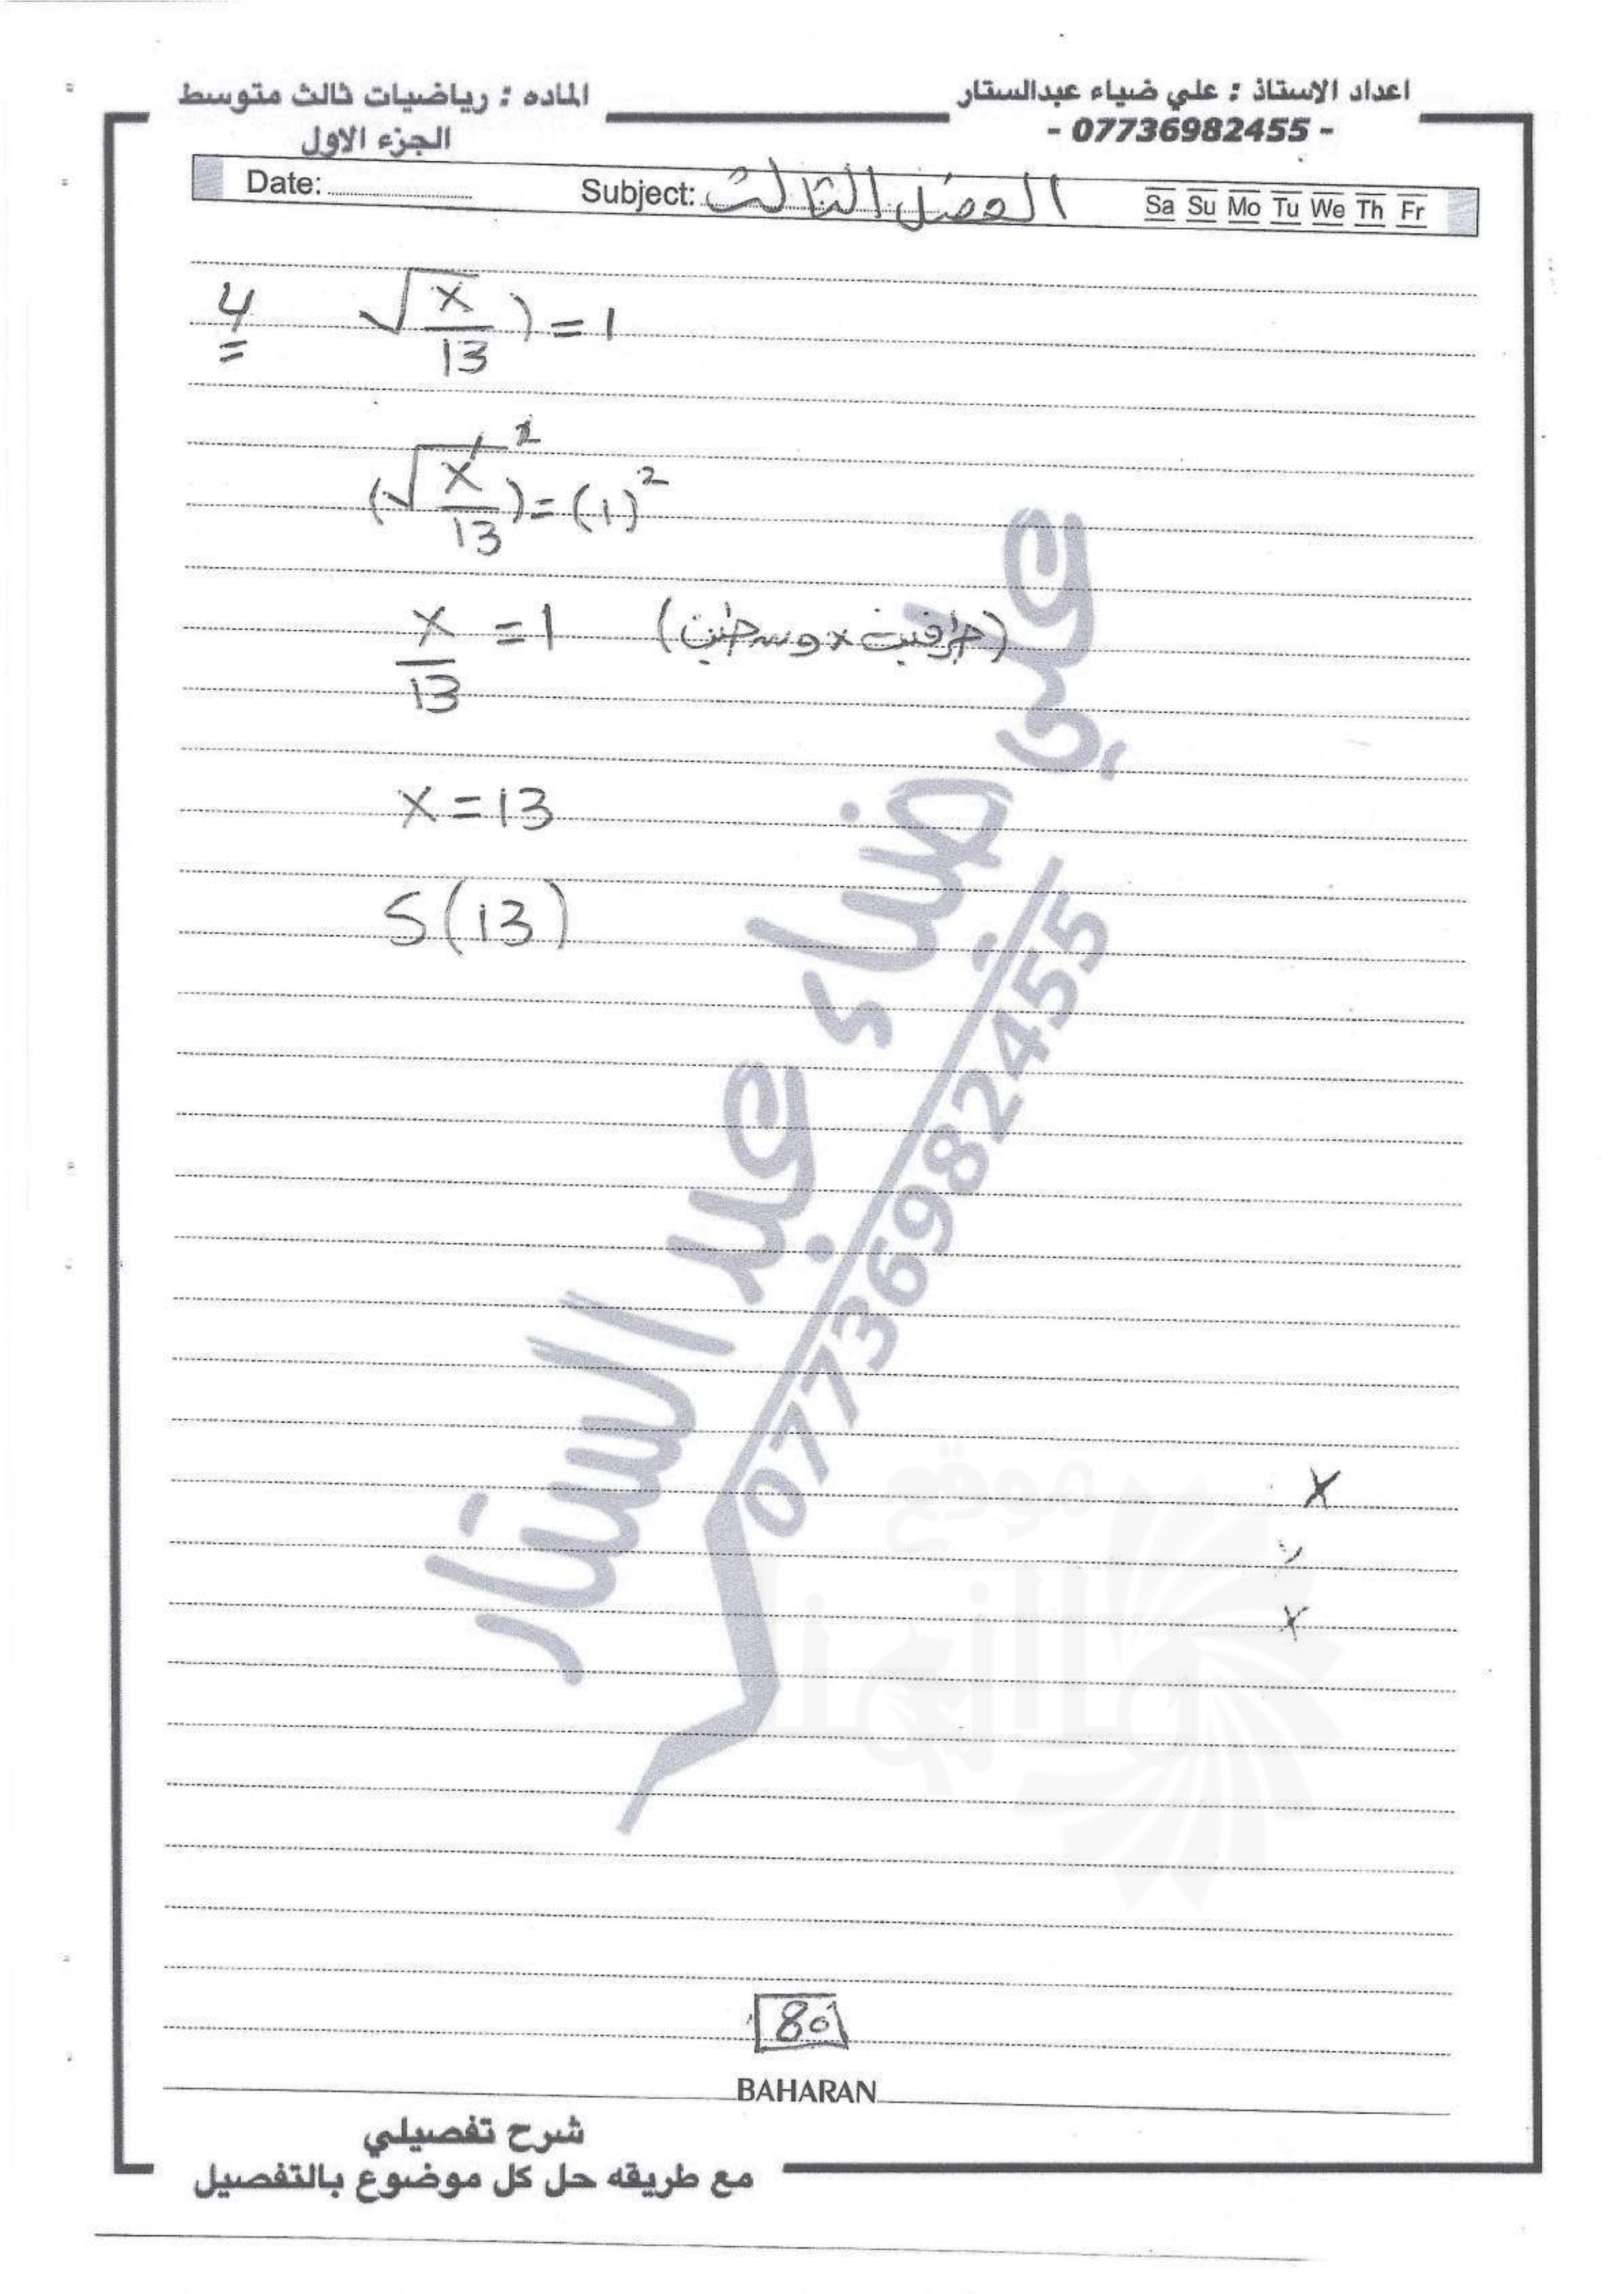 اعداد الاستاذ : علي ضياء عبدالستار
- 07736982455 -
الماده : رياضيات ثالث متوسط
الجزء الاول
Date: Subject: الفصل الثالث Sa Su Mo Tu We Th Fr
4 √(x/13) ) = 1
(√(x/13))² = (1)²
x/13 = 1 (طرفين × وسطين)
x = 13
S(13)
علي ضياء عبد الستار
07736982455
x
x
موقع
80
BAHARAN
شرح تفصيلي
مع طريقه حل كل موضوع بالتفصيل